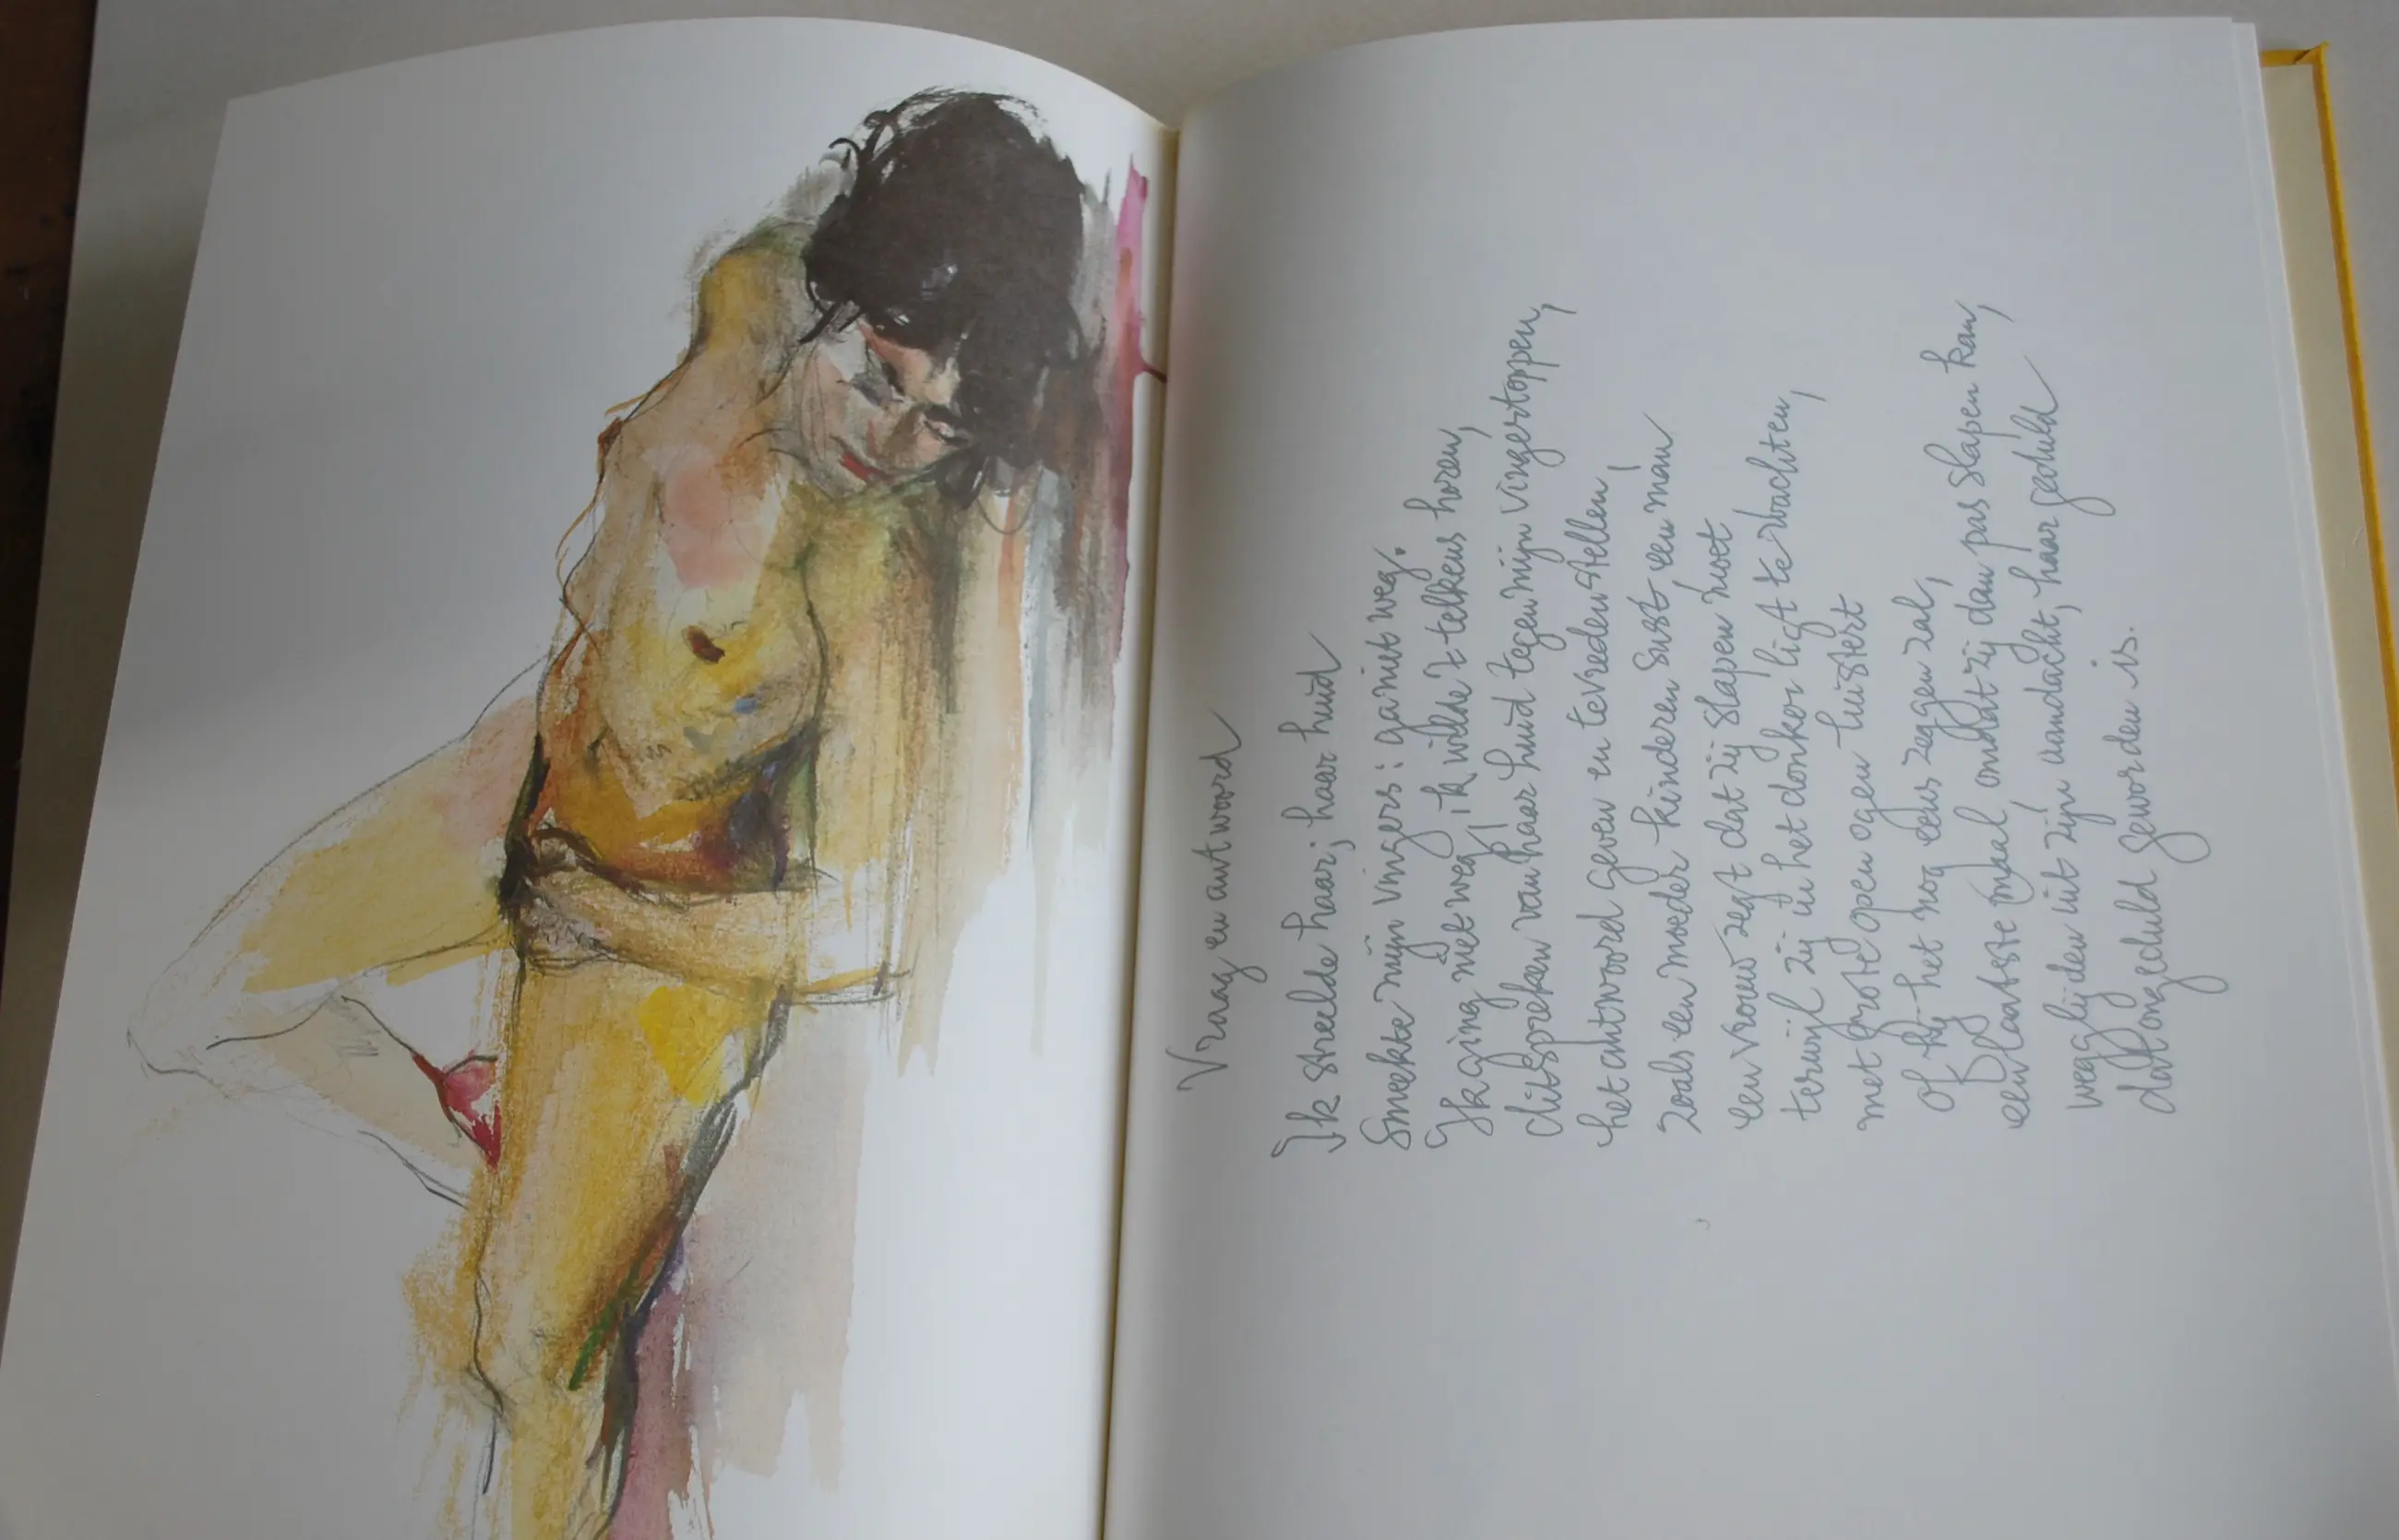 Vraag en antwoord
Ik streelde haar; haar huid
smeekte mijn vingers: ga niet weg.
Ik ging niet weg, ik wilde 't telkens horen,
uitspreken van haar huid tegen mijn vingertoppen,
het antwoord geven en tevreden stellen,
zoals een moeder kinderen sust, een man
een vrouw zegt dat zij slapen moet
terwijl zij in het donker ligt te wachten,
met grote open ogen luistert
of hij het nog eens zeggen zal,
een laatste maal, omdat zij dan pas slapen kan,
wegglijden uit zijn aandacht, haar geduld
dat ongeduld geworden is.